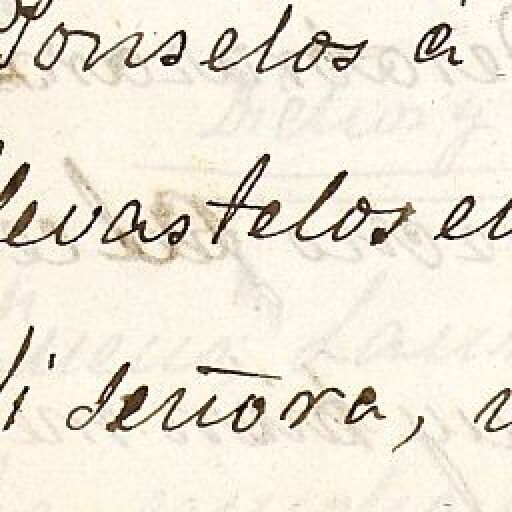 Ponselos á
levastelos en
di señora,